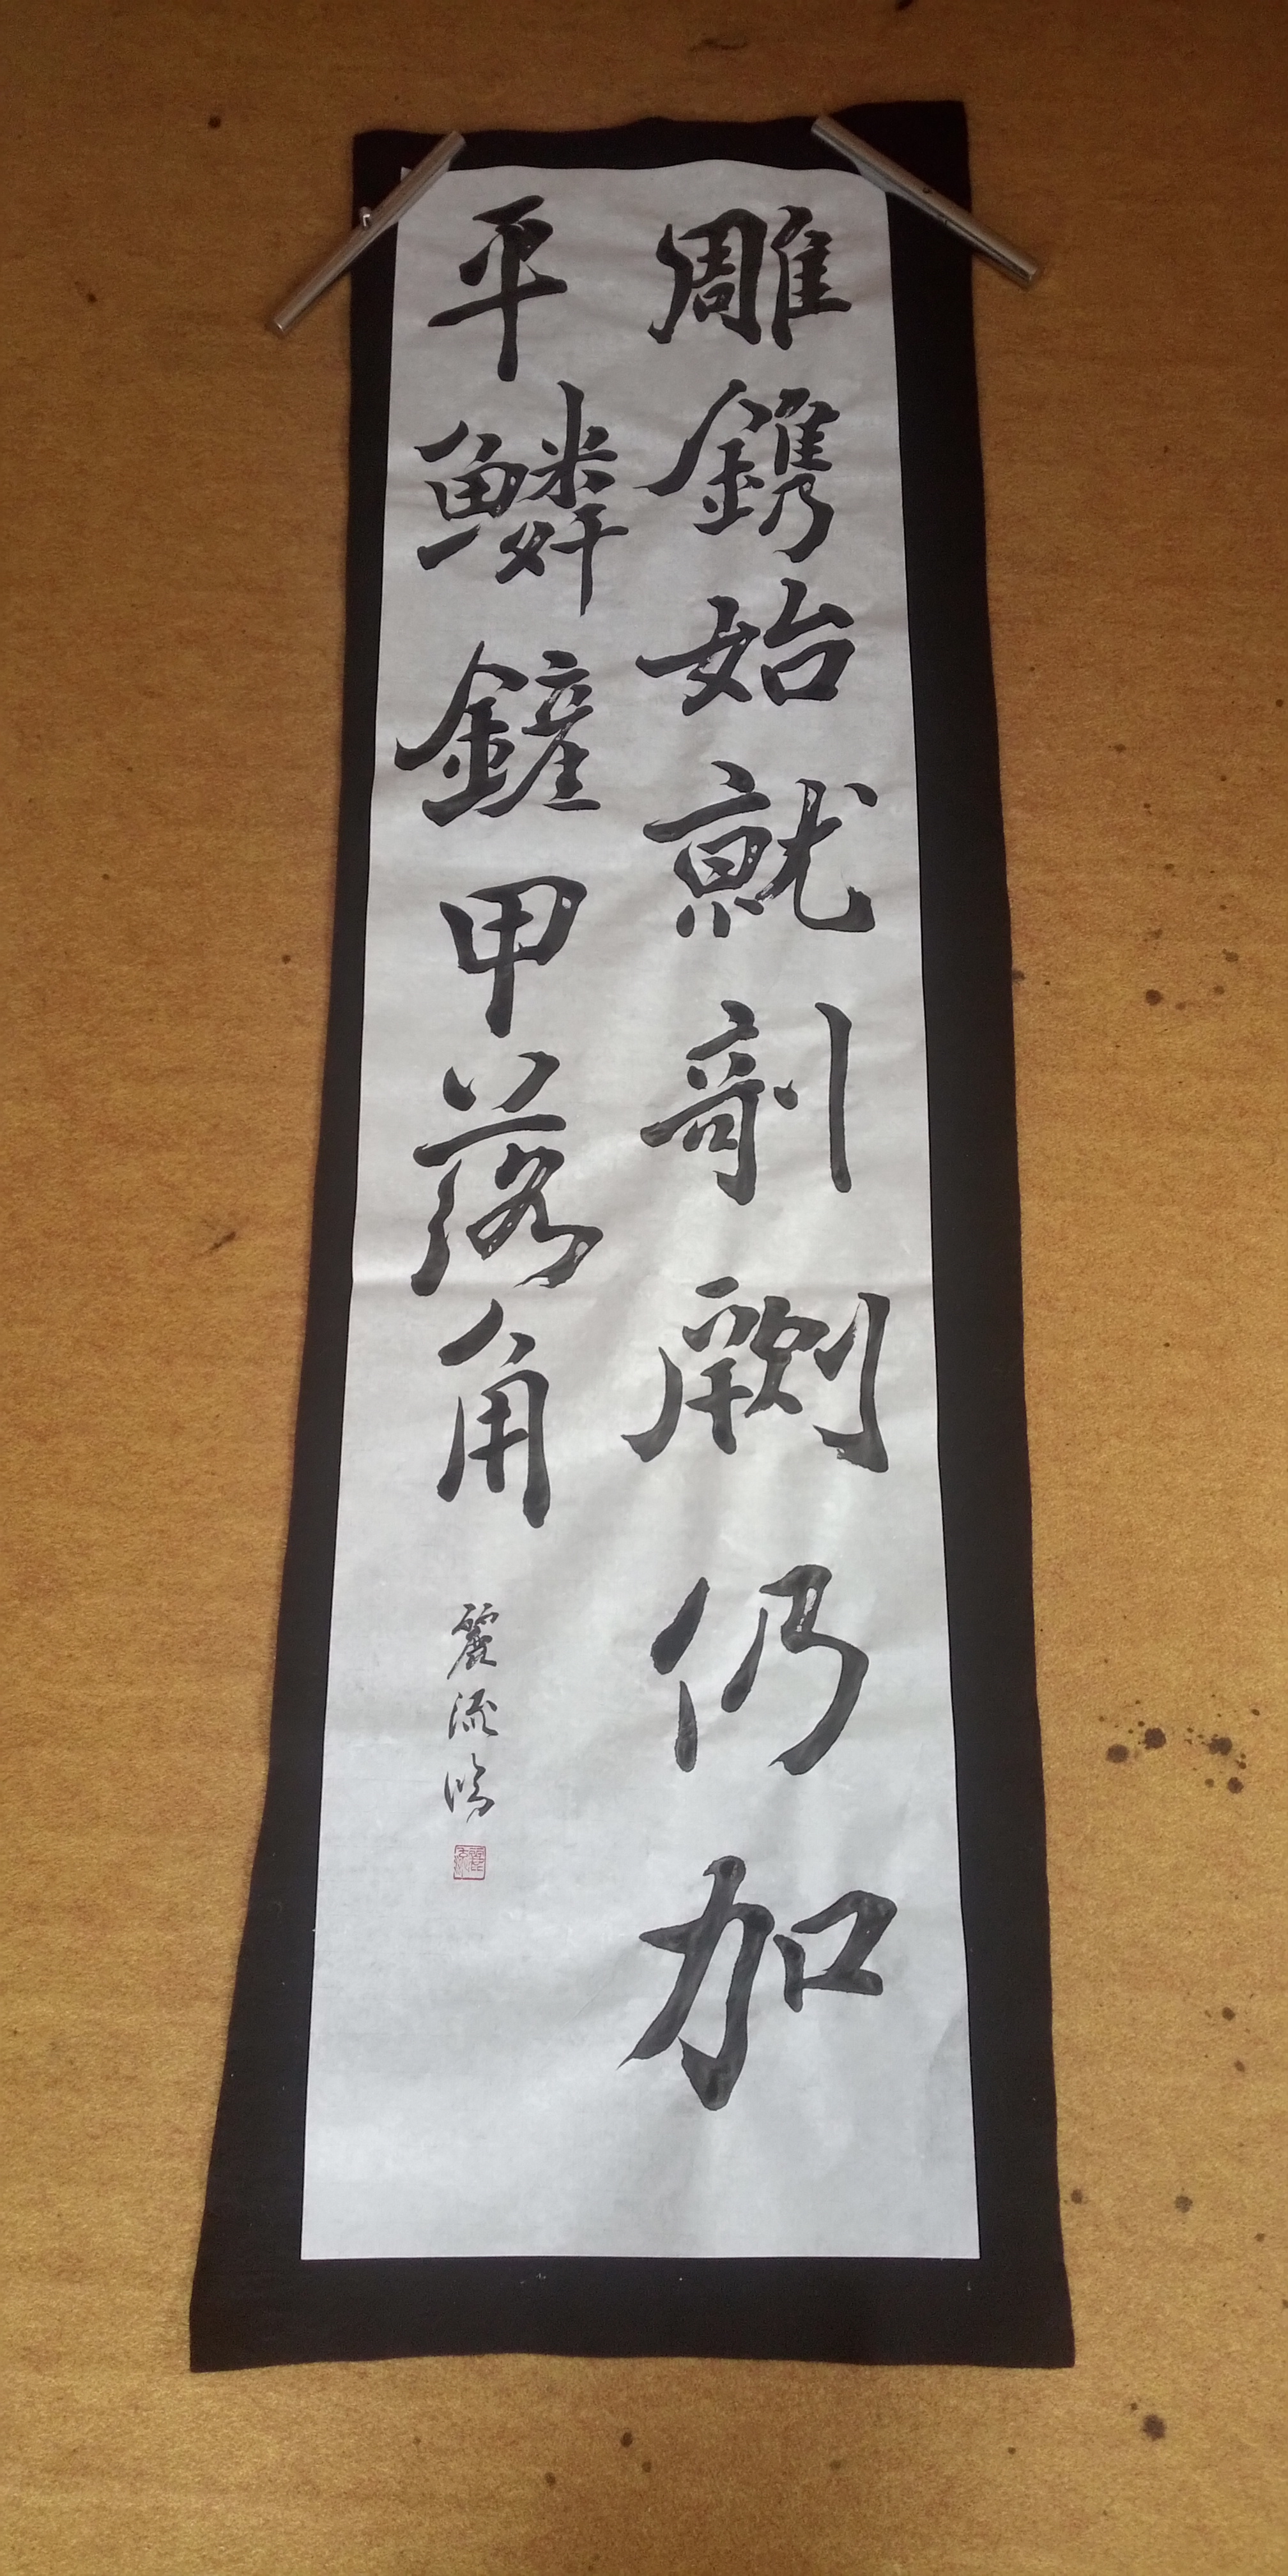 雕鐫始就剞劂仍加
平鱗鏟甲落角
麗流臨